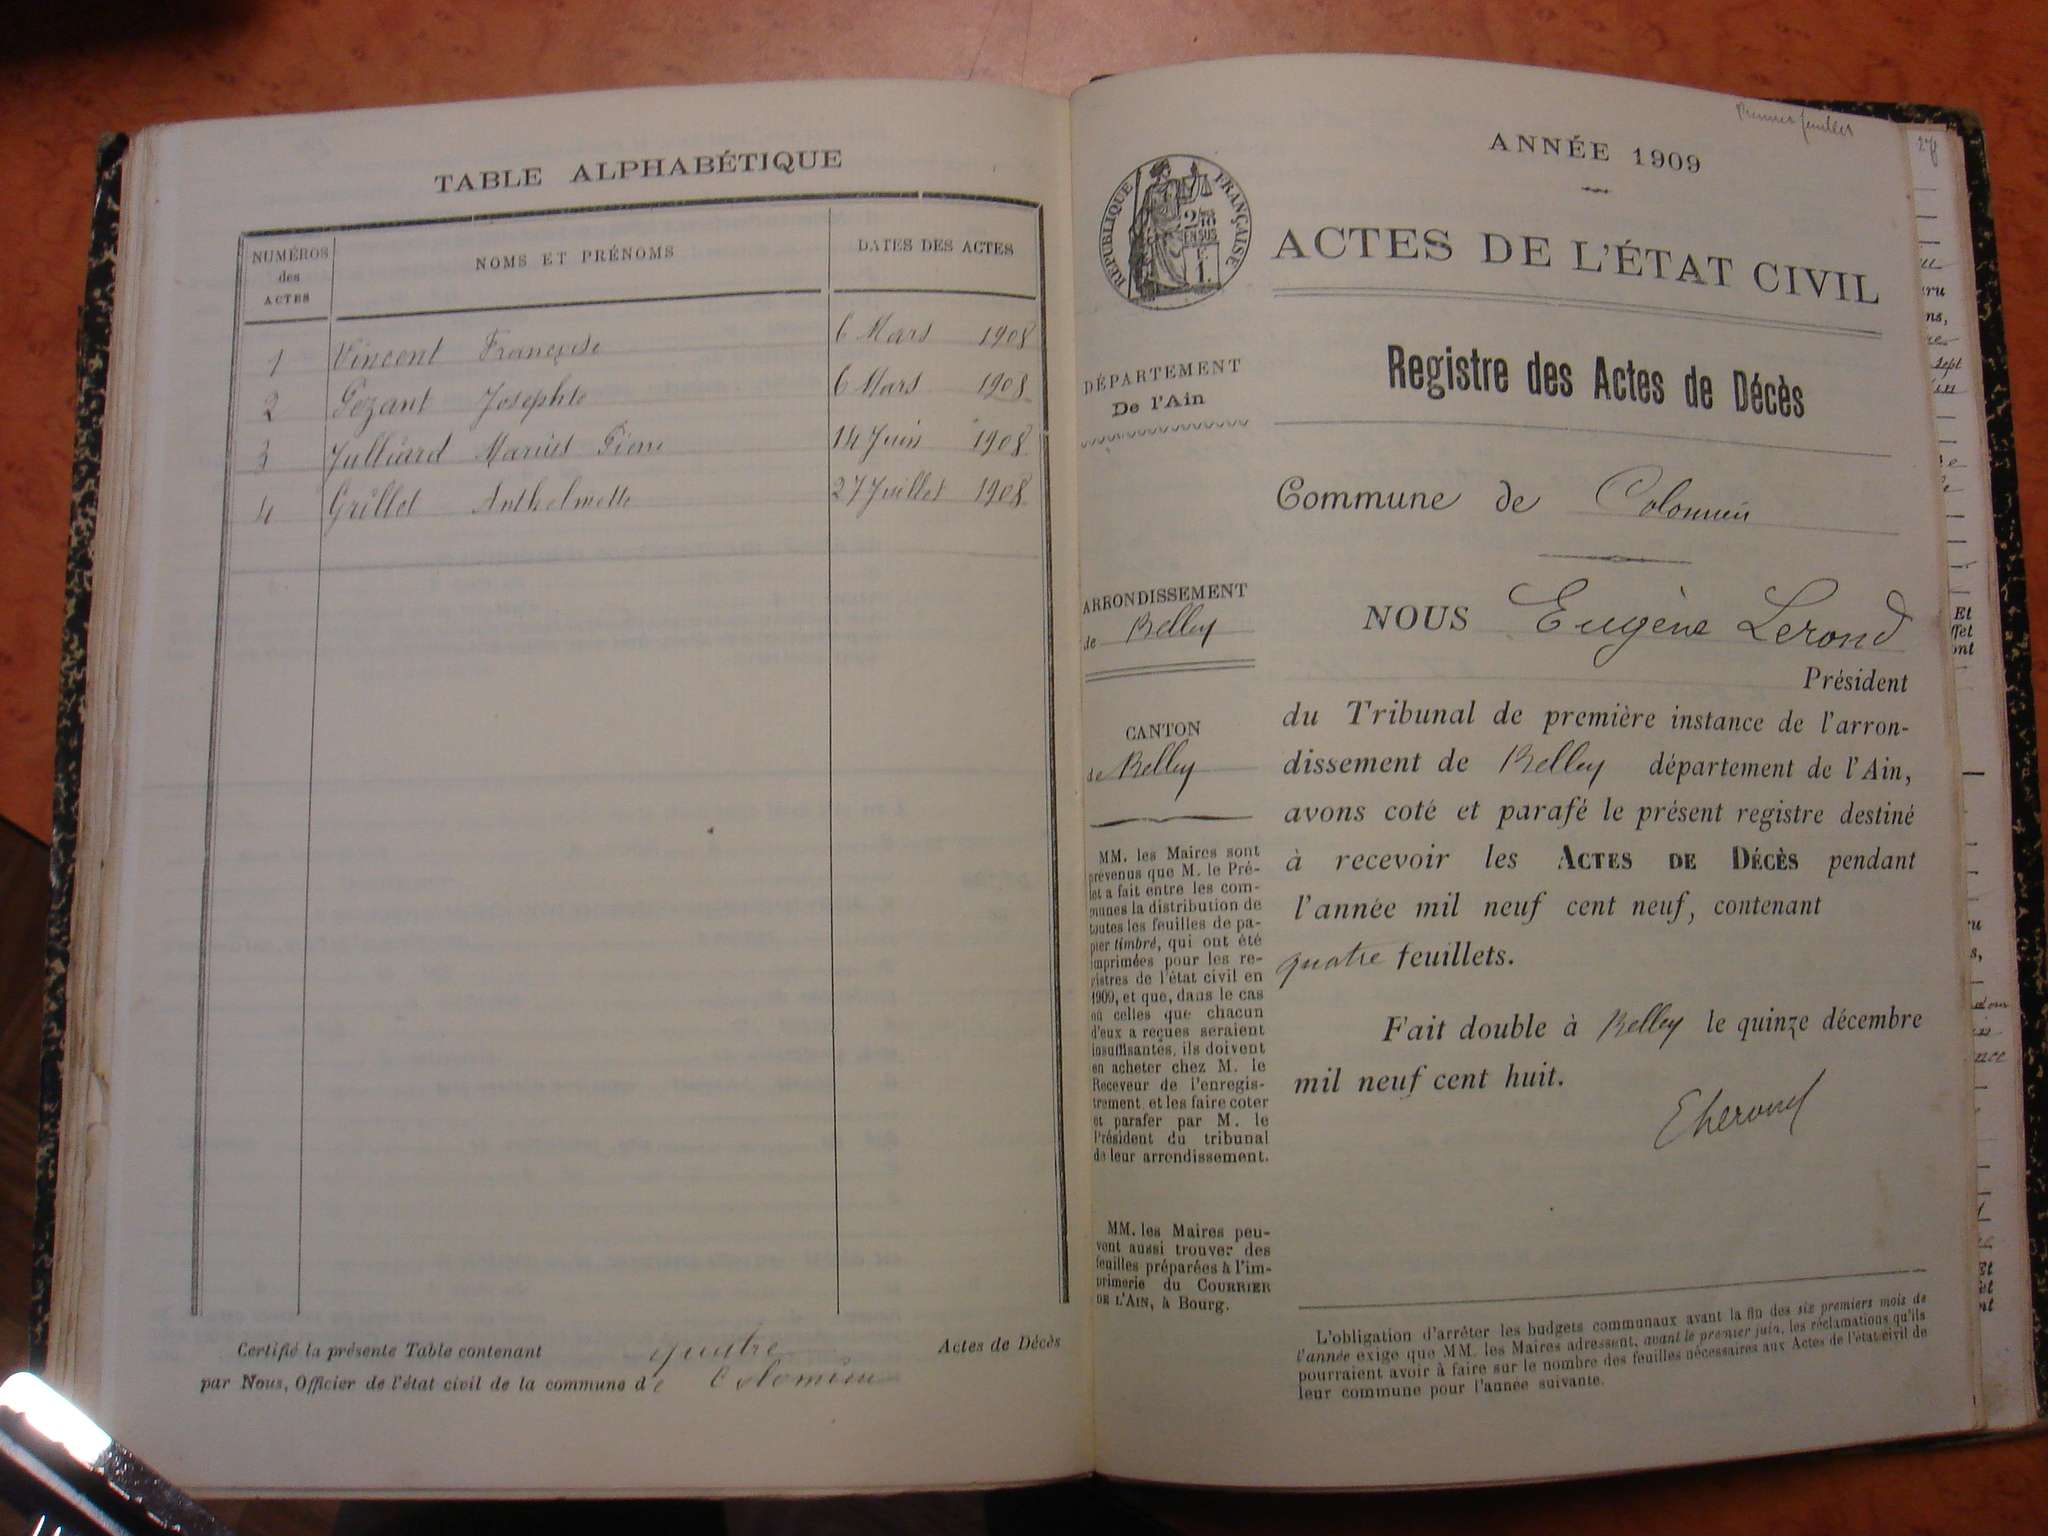 TABLE ALPHABÉTIQUE
NUMÉROS des ACTES
NOMS ET PRÉNOMS
DATES DES ACTES
1 Vincent Françoise 6 Mars 1908
2 Gezant Josephte 6 Mars 1908
3 Julliard Marius Pierre 14 Juin 1908
4 Grillet Anthelmette 27 Juillet 1908
Certifié la présente Table contenant quatre Actes de Décès
par Nous, Officier de l'état civil de la commune de Colomieu
Premier feuillet
ANNÉE 1909
RÉPUBLIQUE FRANÇAISE
2/10 EN SUS
1 F.
ACTES DE L'ÉTAT CIVIL
Registre des Actes de Décès
DÉPARTEMENT
De l'Ain
Commune de Colomieu
ARRONDISSEMENT
de Belley
CANTON
de Belley
MM. les Maires sont
prévenus que M. le Pré-
fet a fait entre les com-
munes la distribution de
toutes les feuilles de pa-
pier timbré, qui ont été
imprimées pour les re-
gistres de l'état civil en
1909, et que, dans le cas
où celles que chacun
d'eux a reçues seraient
insuffisantes, ils doivent
en acheter chez M. le
Receveur de l'enregis-
trement et les faire coter
et parafer par M. le
Président du tribunal
de leur arrondissement.
MM. les Maires peu-
vent aussi trouver des
feuilles préparées à l'im-
primerie du COURRIER
DE L'AIN, à Bourg.
NOUS Eugène Lerond
Président
du Tribunal de première instance de l'arron-
dissement de Belley département de l'Ain,
avons coté et parafé le présent registre destiné
à recevoir les ACTES DE DÉCÈS pendant
l'année mil neuf cent neuf, contenant
quatre feuillets.
Fait double à Belley le quinze décembre
mil neuf cent huit.
ELerond
L'obligation d'arrêter les budgets communaux avant la fin des six premiers mois de
l'année exige que MM. les Maires adressent, avant le premier juin, les réclamations qu'ils
pourraient avoir à faire sur le nombre des feuilles nécessaires aux Actes de l'état civil de
leur commune pour l'année suivante.